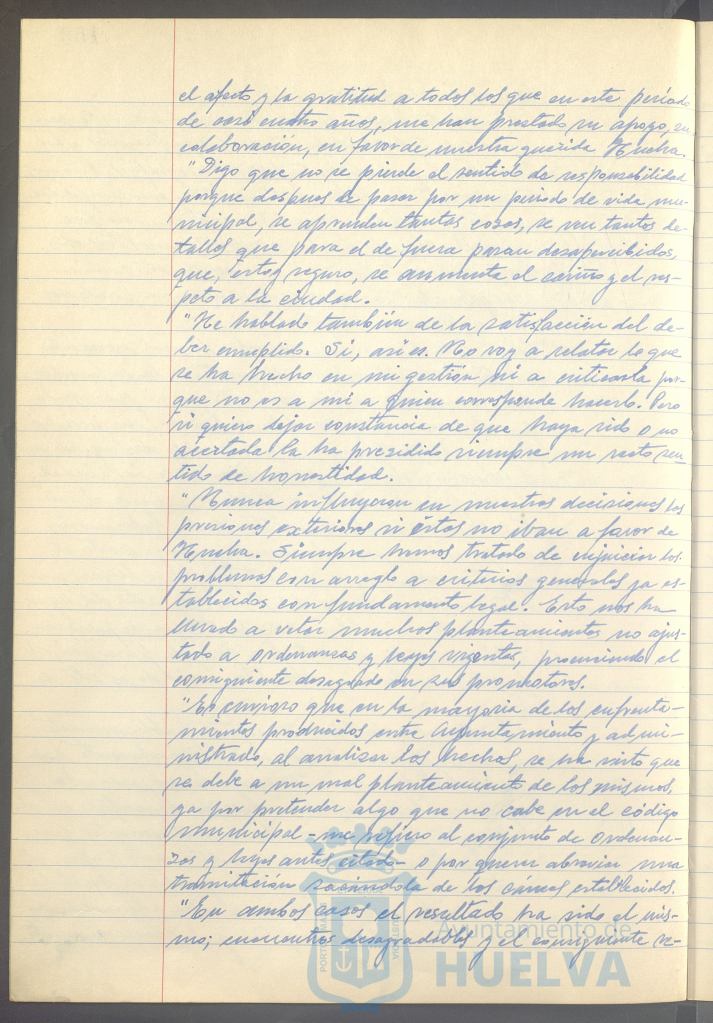 el afecto y la gratitud a todos los que en este período
de casi cuatro años, me han prestado su apoyo, su
colaboración, en favor de nuestra querida Huelva.
"Digo que no se pierde el sentido de responsabilidad
porque despues de pasar por un período de vida mu-
nicipal, se aprenden tantas cosas, se ven tantos de-
talles que para el de fuera pasan desapercibidos,
que, estoy seguro, se aumenta el cariño y el res-
peto a la ciudad.
"He hablado también de la satisfacción del de-
ber cumplido. Sí, así es. No voy a relatar lo que
se ha hecho en mi gestión ni a criticarla por-
que no es a mí a quien corresponde hacerlo. Pero
si quiero dejar constancia de que haya sido o no
acertada la ha presidido siempre un recto sen-
tido de honestidad.
"Nunca influyeron en nuestras decisiones las
presiones exteriores si éstas no iban a favor de
Huelva. Siempre hemos tratado de enjuiciar los
problemas con arreglo a criterios generales ya es-
tablecidos con fundamento legal. Esto nos ha
llevado a vetar muchos planteamientos no ajus-
tado a ordenanzas y leyes vigentes, produciendo el
consiguiente desagrado en sus promotores.
"Es curioso que en la mayoría de los enfrenta-
mientos producidos entre Ayuntamiento y admi-
nistrado, al analizar los hechos, se ha visto que
se debe a un mal planteamiento de los mismos,
ya por pretender algo que no cabe en el código
municipal - me refiero al conjunto de ordenan-
zas y leyes antes citado - o por querer abreviar una
tramitación sacándola de los cauces establecidos.
"En ambos casos el resultado ha sido el mis-
mo; encuentros desagradables y el consiguiente re-
Ayuntamiento de
HUELVA